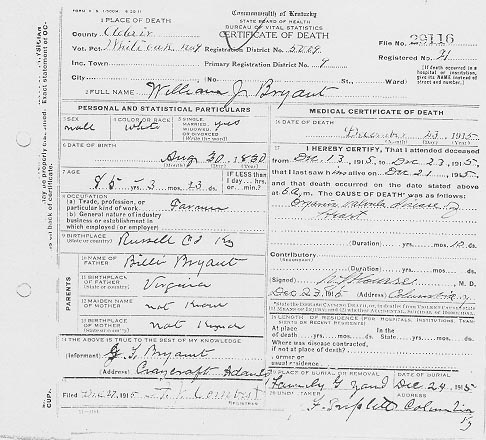 1 PLACE OF DEATH
Commonwealth of Kentucky
STATE BOARD OF HEALTH
BUREAU OF VITAL STATISTICS
CERTIFICATE OF DEATH
County Adair
Vot. Pct. White oak Registration District No.
File No. 29116
Inc. Town Primary Registration District No.
Registered No. 21
City (No. St., Ward)
(If death occurred in a
hospital or institution,
give its NAME instead of
street and number.)
2 FULL NAME William J Bryant
PERSONAL AND STATISTICAL PARTICULARS
3 SEX
male
4 COLOR OR RACE
white
5 SINGLE,
MARRIED,
WIDOWED,
OR DIVORCED
(Write the word)
yes
6 DATE OF BIRTH
Aug 30, 1830
(Month) (Day) (Year)
7 AGE
85 yrs. 3 mos. 23 ds.
IF LESS than
1 day ... hrs.
or ... min.?
8 OCCUPATION
(a) Trade, profession, or
particular kind of work Farmer
(b) General nature of industry
business or establishment in
which employed (or employer)
9 BIRTHPLACE
(State or country) Russell Co Ky
PARENTS
10 NAME OF
FATHER Bille Bryant
11 BIRTHPLACE
OF FATHER
(State or country) Virginia
12 MAIDEN NAME
OF MOTHER not Know
13 BIRTHPLACE
OF MOTHER not Know
14 THE ABOVE IS TRUE TO THE BEST OF MY KNOWLEDGE
(Informant) Bryant
(Address) Craycraft Adair
Filed Dec 27, 1915
REGISTRAR
MEDICAL CERTIFICATE OF DEATH
16 DATE OF DEATH
December 23, 1915
(Month) (Day) (Year)
17 I HEREBY CERTIFY, That I attended deceased
from Dec 13, 1915, to Dec 23, 1915,
that I last saw h alive on Dec 21, 1915,
and that death occurred on the date stated above
at 6 a.m. The CAUSE OF DEATH* was as follows:
Organic valvular disease of
Heart
(Duration) yrs. mos. ds.
Contributory
(Secondary)
(Duration) yrs. mos. ds.
(Signed) M.D.
Dec 23, 1915 (Address) Columbia Ky
18 LENGTH OF RESIDENCE (FOR HOSPITALS, INSTITUTIONS, TRANSIENTS OR RECENT RESIDENTS)
At place
of death yrs. mos. ds.
In the
State yrs. mos. ds.
Where was disease contracted,
if not at place of death?
Former or
usual residence
19 PLACE OF BURIAL OR REMOVAL
Family G yard
DATE OF BURIAL
Dec 24, 1915
20 UNDERTAKER
Triplett
ADDRESS
Columbia
Ky